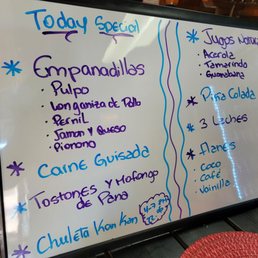 Today Special
* Empanadillas
• Pulpo
• Longaniza de Pollo
• Pernil
• Jamon y Queso
• Pionono
* Carne Guisada
* Tostones y Mofongo
de Pana
* Chuleta Kan Kan
* Jugos
• Acerola
• Tamarindo
• Guanabana
* Piña Colada
* 3 Leches
* Flanes
• Coco
• Café
• Vainilla